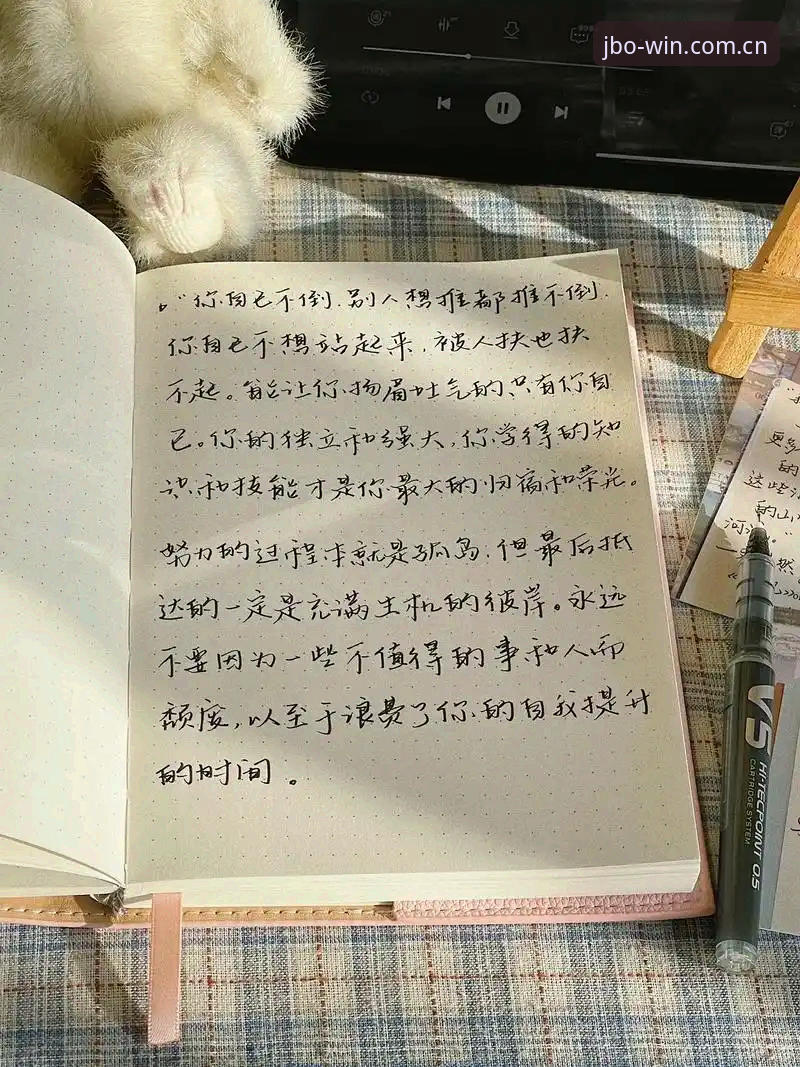 jbo-win.com.cn
。“你自己不倒,别人想推都推不倒.
你自己不想站起来,被人扶也扶
不起。能让你扬眉吐气的只有你自
己。你的独立和强大,你学得的知
识和技能才是你最大的归宿和荣光。
努力的过程本就是孤岛,但最后抵
达的一定是充满生机的彼岸。永远
不要因为一些不值得的事和人而
颓废,以至于浪费了你的自我提升
的时间。
的
这些
的山
V5 HI-TECPOINT 0.5
CARTRIDGE SYSTEM